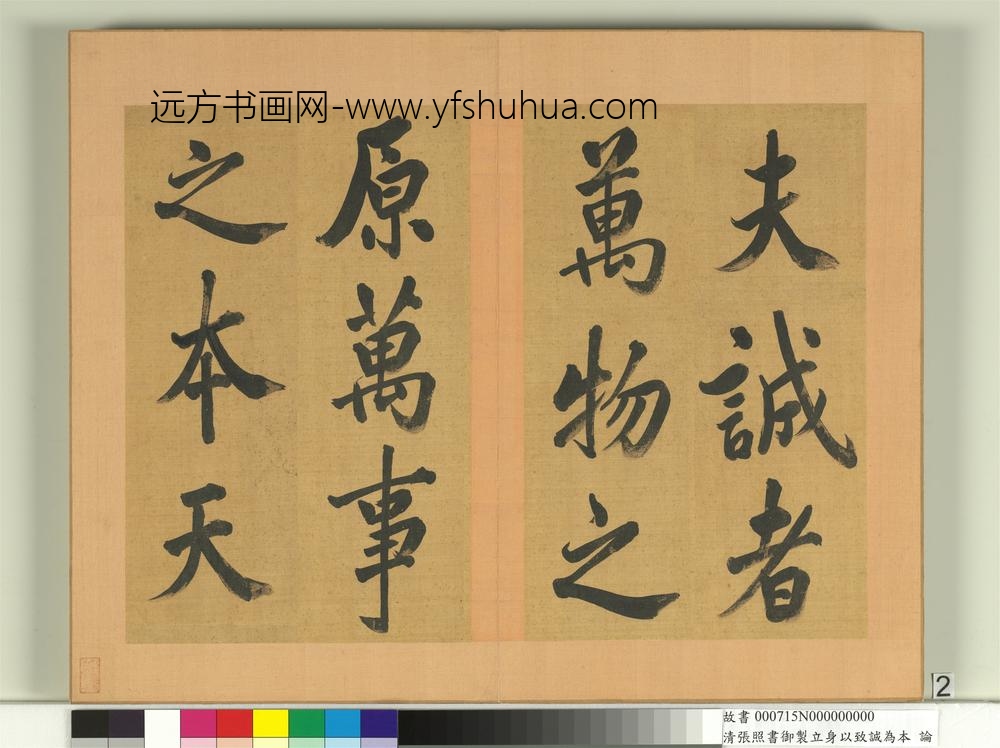 远方书画网-www.yfshuhua.com
夫誠者
萬物之
原萬事
之本天
2
故書 000715N000000000
清張照書御製立身以致誠為本 論